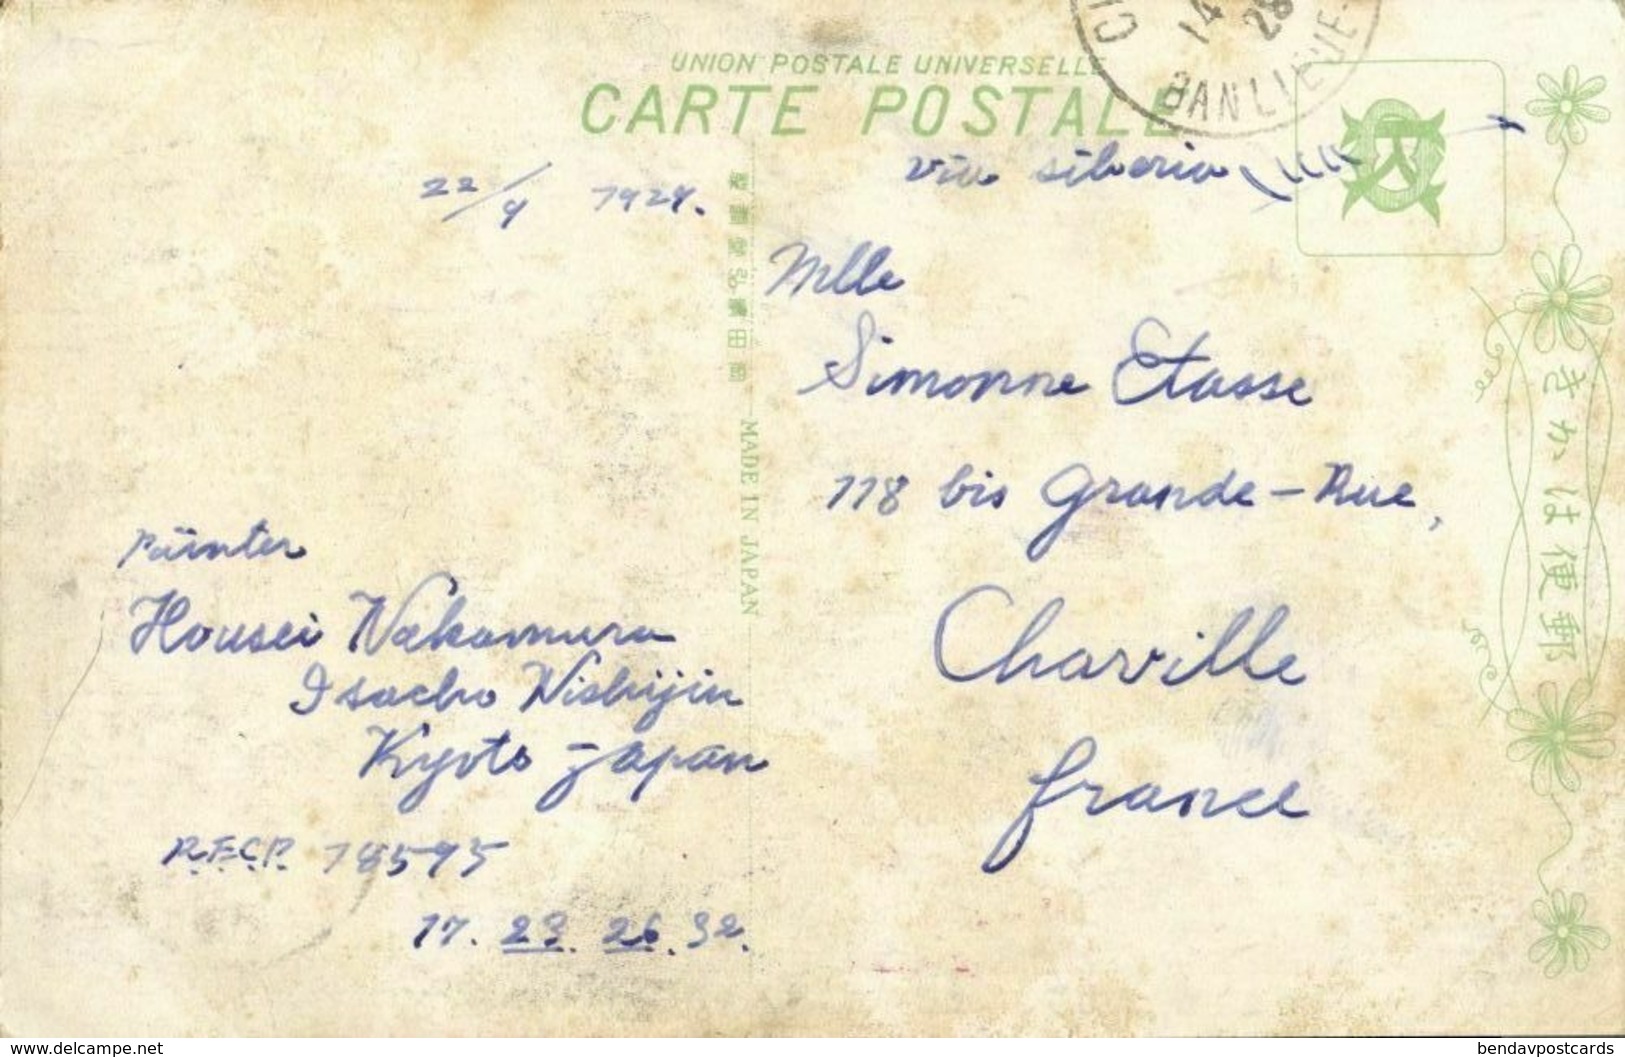 UNION POSTALE UNIVERSELLE
CARTE POSTALE
14
28
BANLIEUE
via siberia
22/9 1924.
Mlle
Simonne Etasse
118 bis Grande-Rue,
Chaville
france
MADE IN JAPAN
きかは便郵
Painter
Housei Nakamura
Isacho Nishijin
Kyoto Japan
R.F.C.P. 78595
17. 23. 26. 32.
www.delcampe.net
bendavpostcards